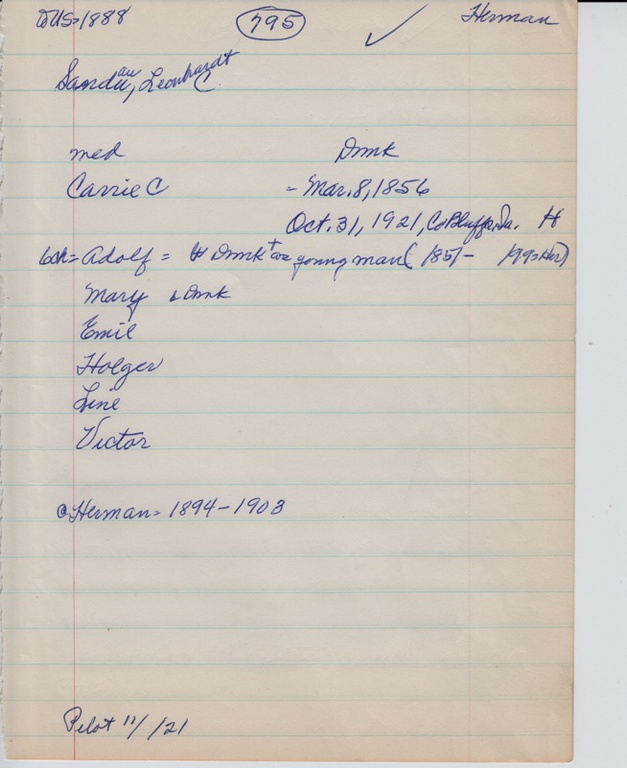 toUS=1888 795 Herman
Sandau, Leonhardt C
med Dnmk
Carrie C - Mar. 8, 1856
Oct. 31, 1921, CoBluffs, Ia. H
6ch= Adolf = Dnmk + as young man (185/-
Mary Dnmk
Emil
Holger
Line
Victor
@Herman= 1894-1903
Pilot 11/ /21